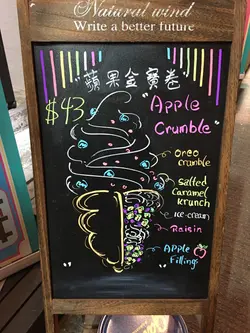 Natural wind
Write a better future
"蘋果金寶卷"
$43
"Apple
Crumble"
oreo
crumble
salted
caramel
krunch
ice-cream
Raisin
Apple
Fillings